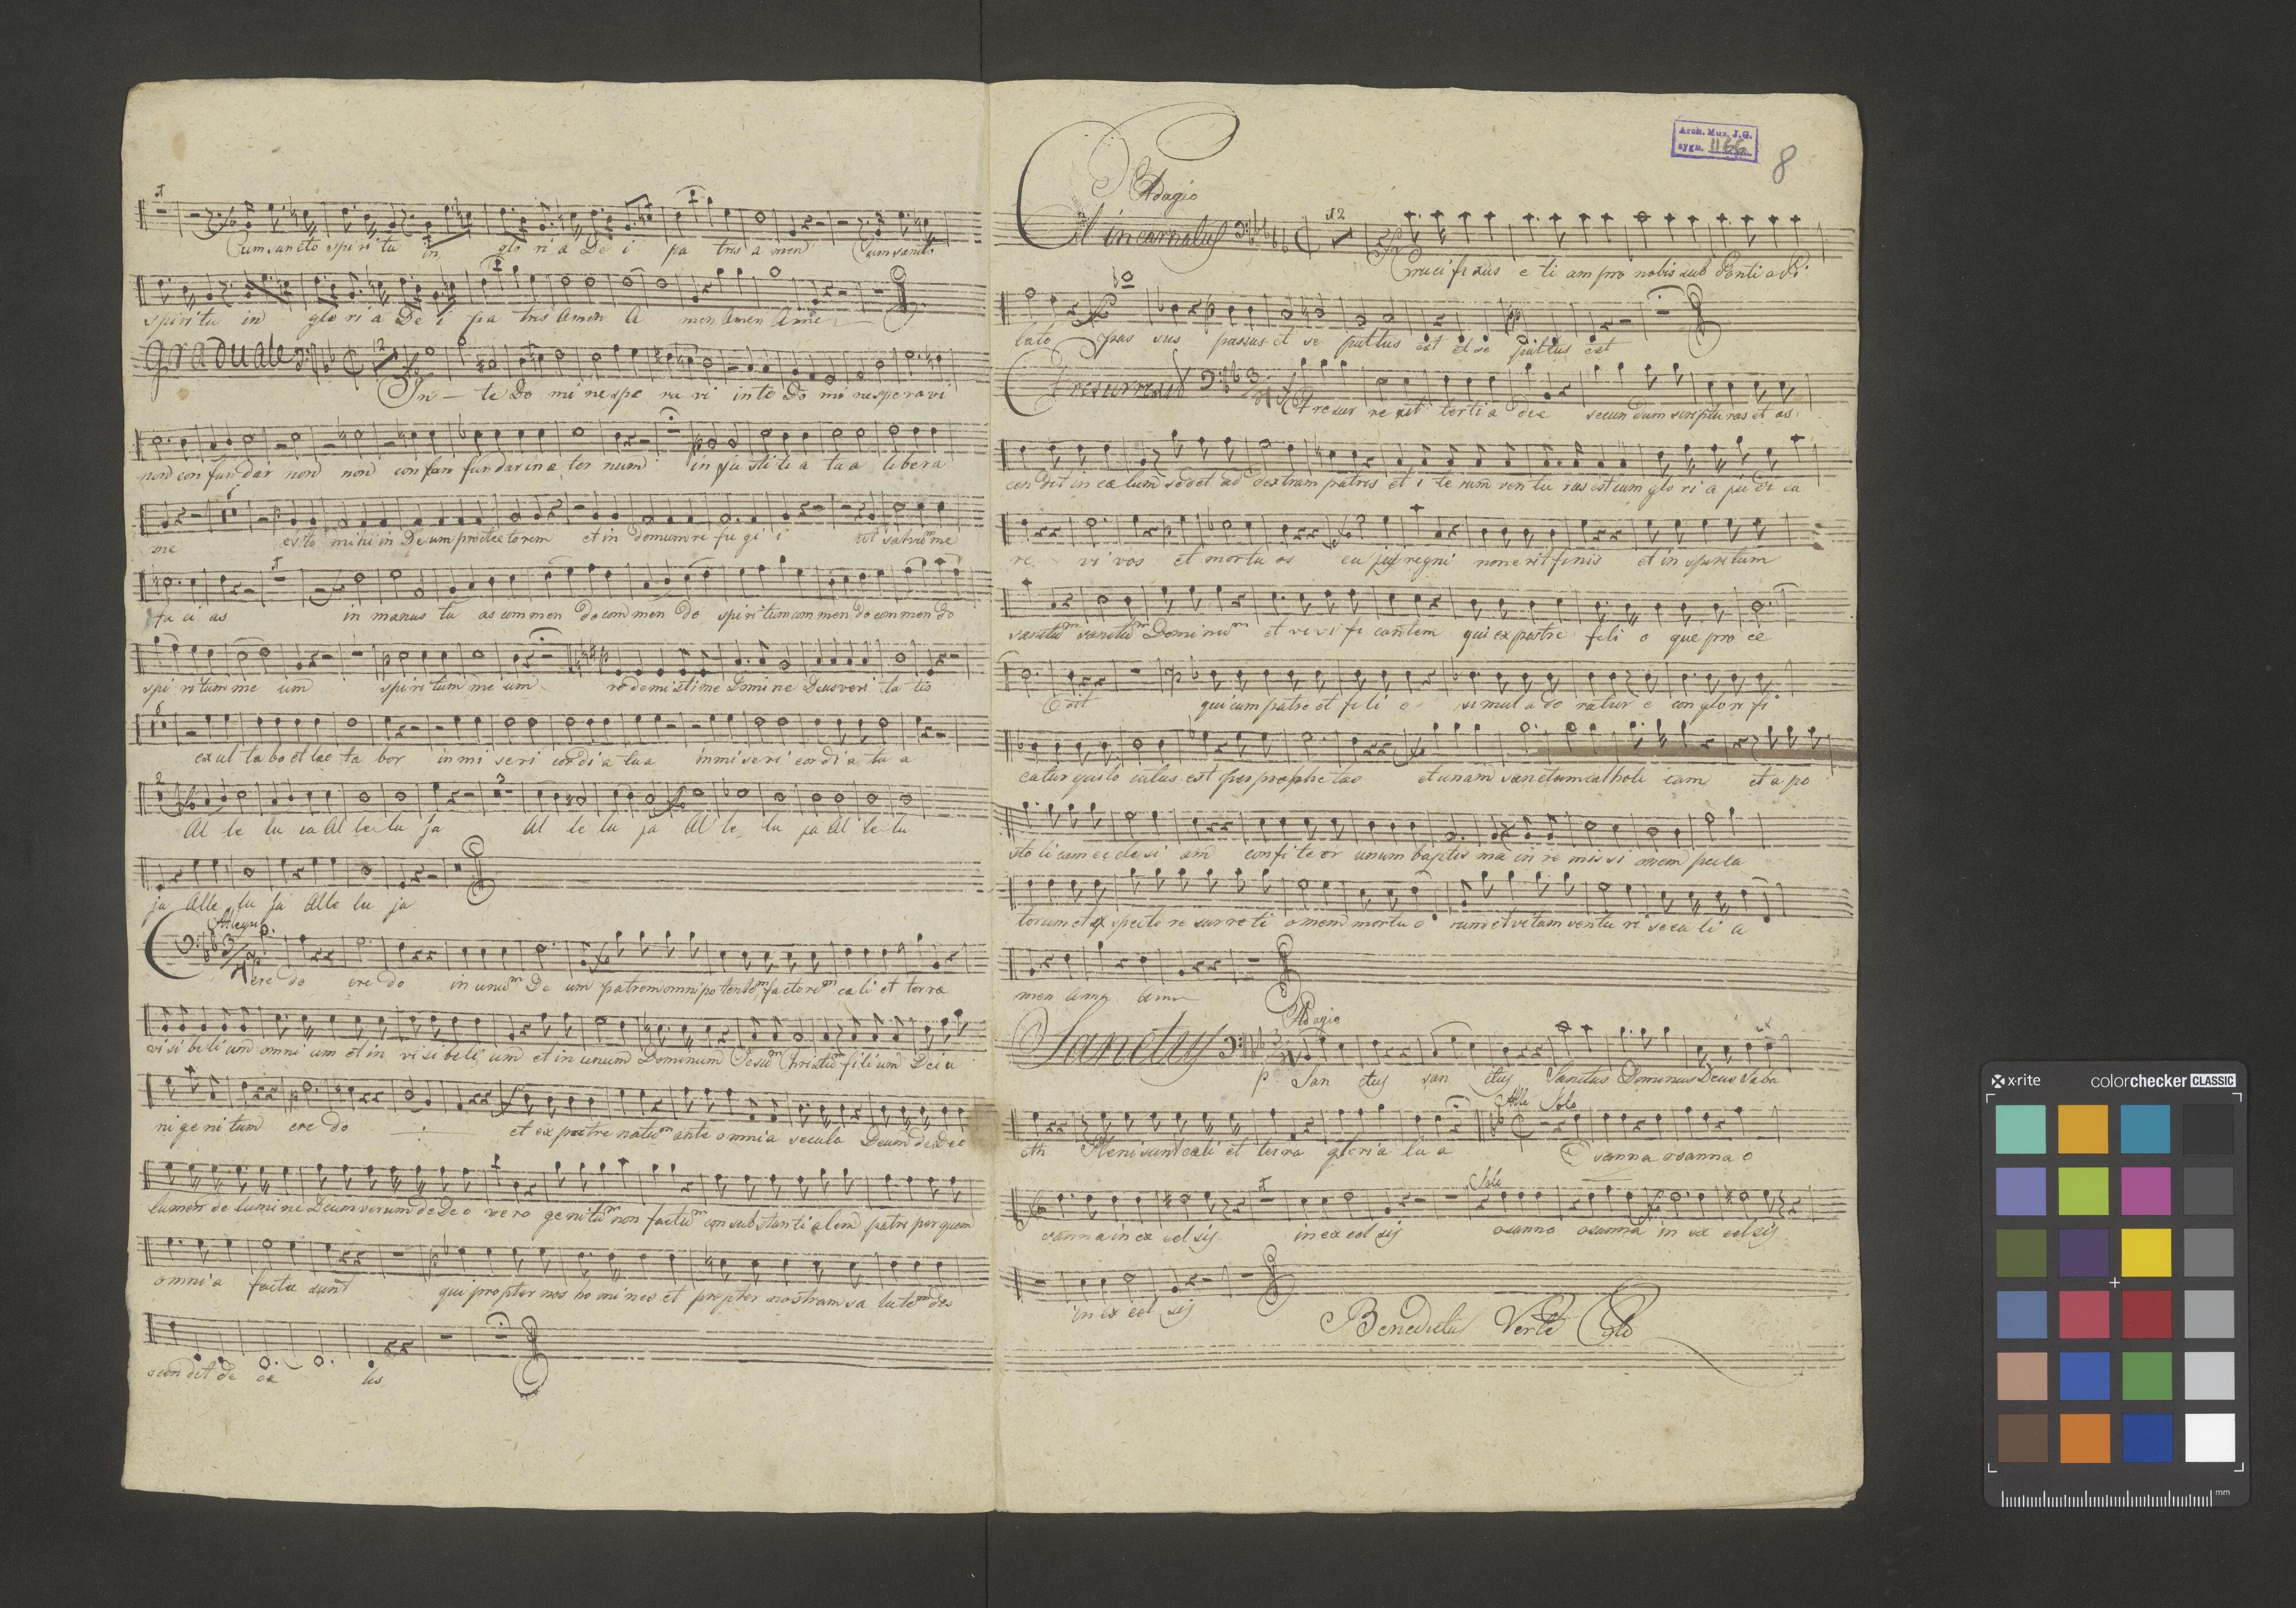 Cum sancto spiritu in glo ri a De i pa tris a men Cum sancto
spiritu in glo ri a De i pa tris Amen A men Amen Amen
Graduale 12
In te Do mi ne spe ra vi in te Do mi ne speravi
non con fun dar non non con fun fun dar in æ ter num in ju sti ti a tua libera
me 6 esto mihi in Deum protectorem et in domum re fu gi i ut salvu͞m me
fa ci as in manus tu as commen do commen do spi ri tum com men do commen do
spi ri tum me um spiri tum me um re demisti me Domine Deus veri ta tis
6 exul ta bo et læ ta bor in mi seri cordi a tua in mi seri cordi a tu a
2 Al le lu ia Al le lu ja 2 Al le lu ja Al le lu ja Al le lu
ja Alle lu ja Alle lu ja
Allegro
Cre do cre do in unum De um patrem omnipo tentem factorem cæli et terræ
visi bi li um omni um et in visi bi li um et in unum Dominum Jesum Christum filium Dei u
ni ge ni tum cre do et ex patre natum ante omnia secula Deum de Deo
lumen de lumine Deum verum de De o vero genitum non factum consubstanti alem patri per quem
omnia facta sunt qui propter nos ho mi nes et propter nostram sa lutem des
cen dit de cæ lis
Arch. Muz. J.G.
sygn. 1166
8
Adagio
Et incarnatus 12
Crucifixus e ti am pro nobis sub Ponti o Pi
lato pas sus passus et se pultus est et se pultus est
Et resurrexit
Et resur re xit tertia die secundum scripturas et as
cendit in cælum sedet ad dextram patris et i te rum ven tu rus est cum glo ri a ju di ca
re vi vos et mortu os cu jus regni non erit finis et in spiritum
sanctum sanctum Dominum et vi vi fi cantem qui ex patre fili o que pro ce
dit qui cum patre et fi li o simul a do ratur e con glo ri fi
catur qui lo cutus est per prophe tas et unam sanctam catholi cam et a po
sto li cam ec clesi am confi te or unum baptis ma in re missi onem pecca
torum et ex specto re surrecti onem mortu o rum et vitam ventu ri seculi a
men amen amen
Adagio
Sanctus
p San ctus san ctus Sanctus Dominus Deus Saba
Alle Solo
oth Pleni sunt cæli et terra gloria tu a O sanna osanna o
Solo
sanna in ex cel sij in ex cel sij osanna osanna in ex celsij
in ex cel sij
Benedictus Verte Cito
x-rite
colorchecker CLASSIC
mm